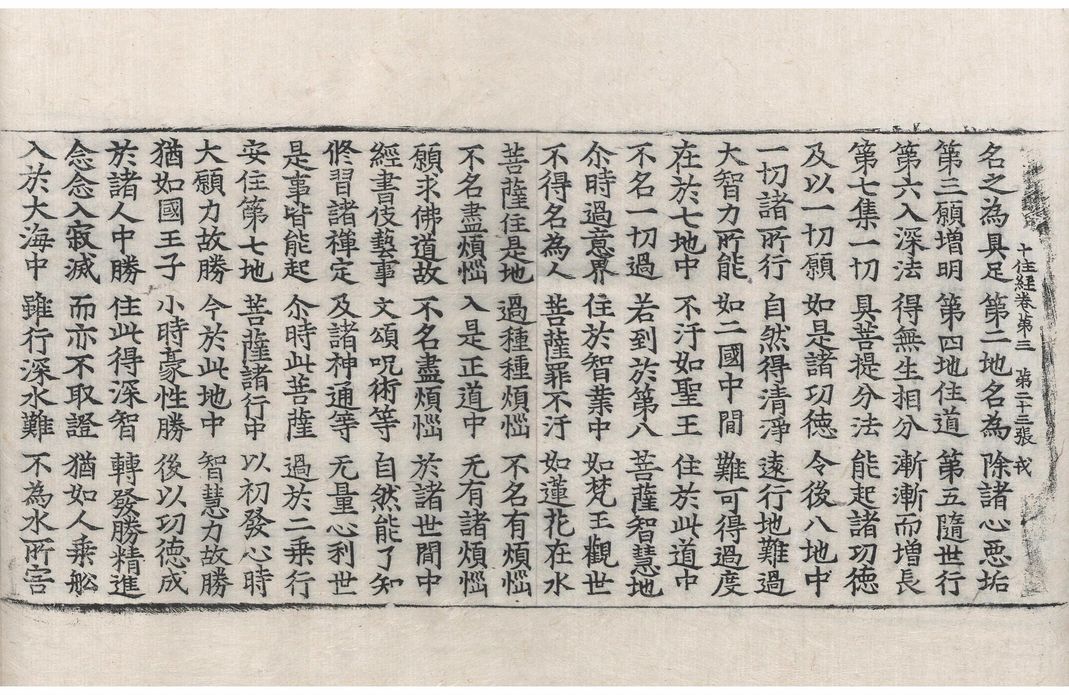 十住経卷第三 第二十三張 戎
名之為具足 第二地名為 除諸心惡垢
第三願增明 第四地住道 第五隨世行
第六入深法 得無生相分 漸漸而增長
第七集一切 具菩提分法 能起諸功德
及以一切願 如是諸功德 令後八地中
一切諸所行 自然得清淨 遠行地難過
大智力所能 如二國中間 難可得過度
在於七地中 不汙如聖王 住於此道中
不名一切過 若到於第八 菩薩智慧地
尒時過意界 住於智業中 如梵王觀世
不得名為人 菩薩罪不汙 如蓮花在水
菩薩住是地 過種種煩惱 不名有煩惱
不名盡煩惱 入是正道中 无有諸煩惱
願求佛道故 不名盡煩惱 於諸世間中
經書伎藝事 文頌呪術等 自然能了知
修習諸禪定 及諸神通等 无量心利世
是事皆能起 尒時此菩薩 過於二乘行
安住第七地 菩薩諸行中 以初發心時
大願力故勝 今於此地中 智慧力故勝
猶如國王子 小時豪性勝 後以功德成
於諸人中勝 住此得深智 轉發勝精進
念念入寂滅 而亦不取證 猶如人乘舩
入於大海中 雖行深水難 不為水所害